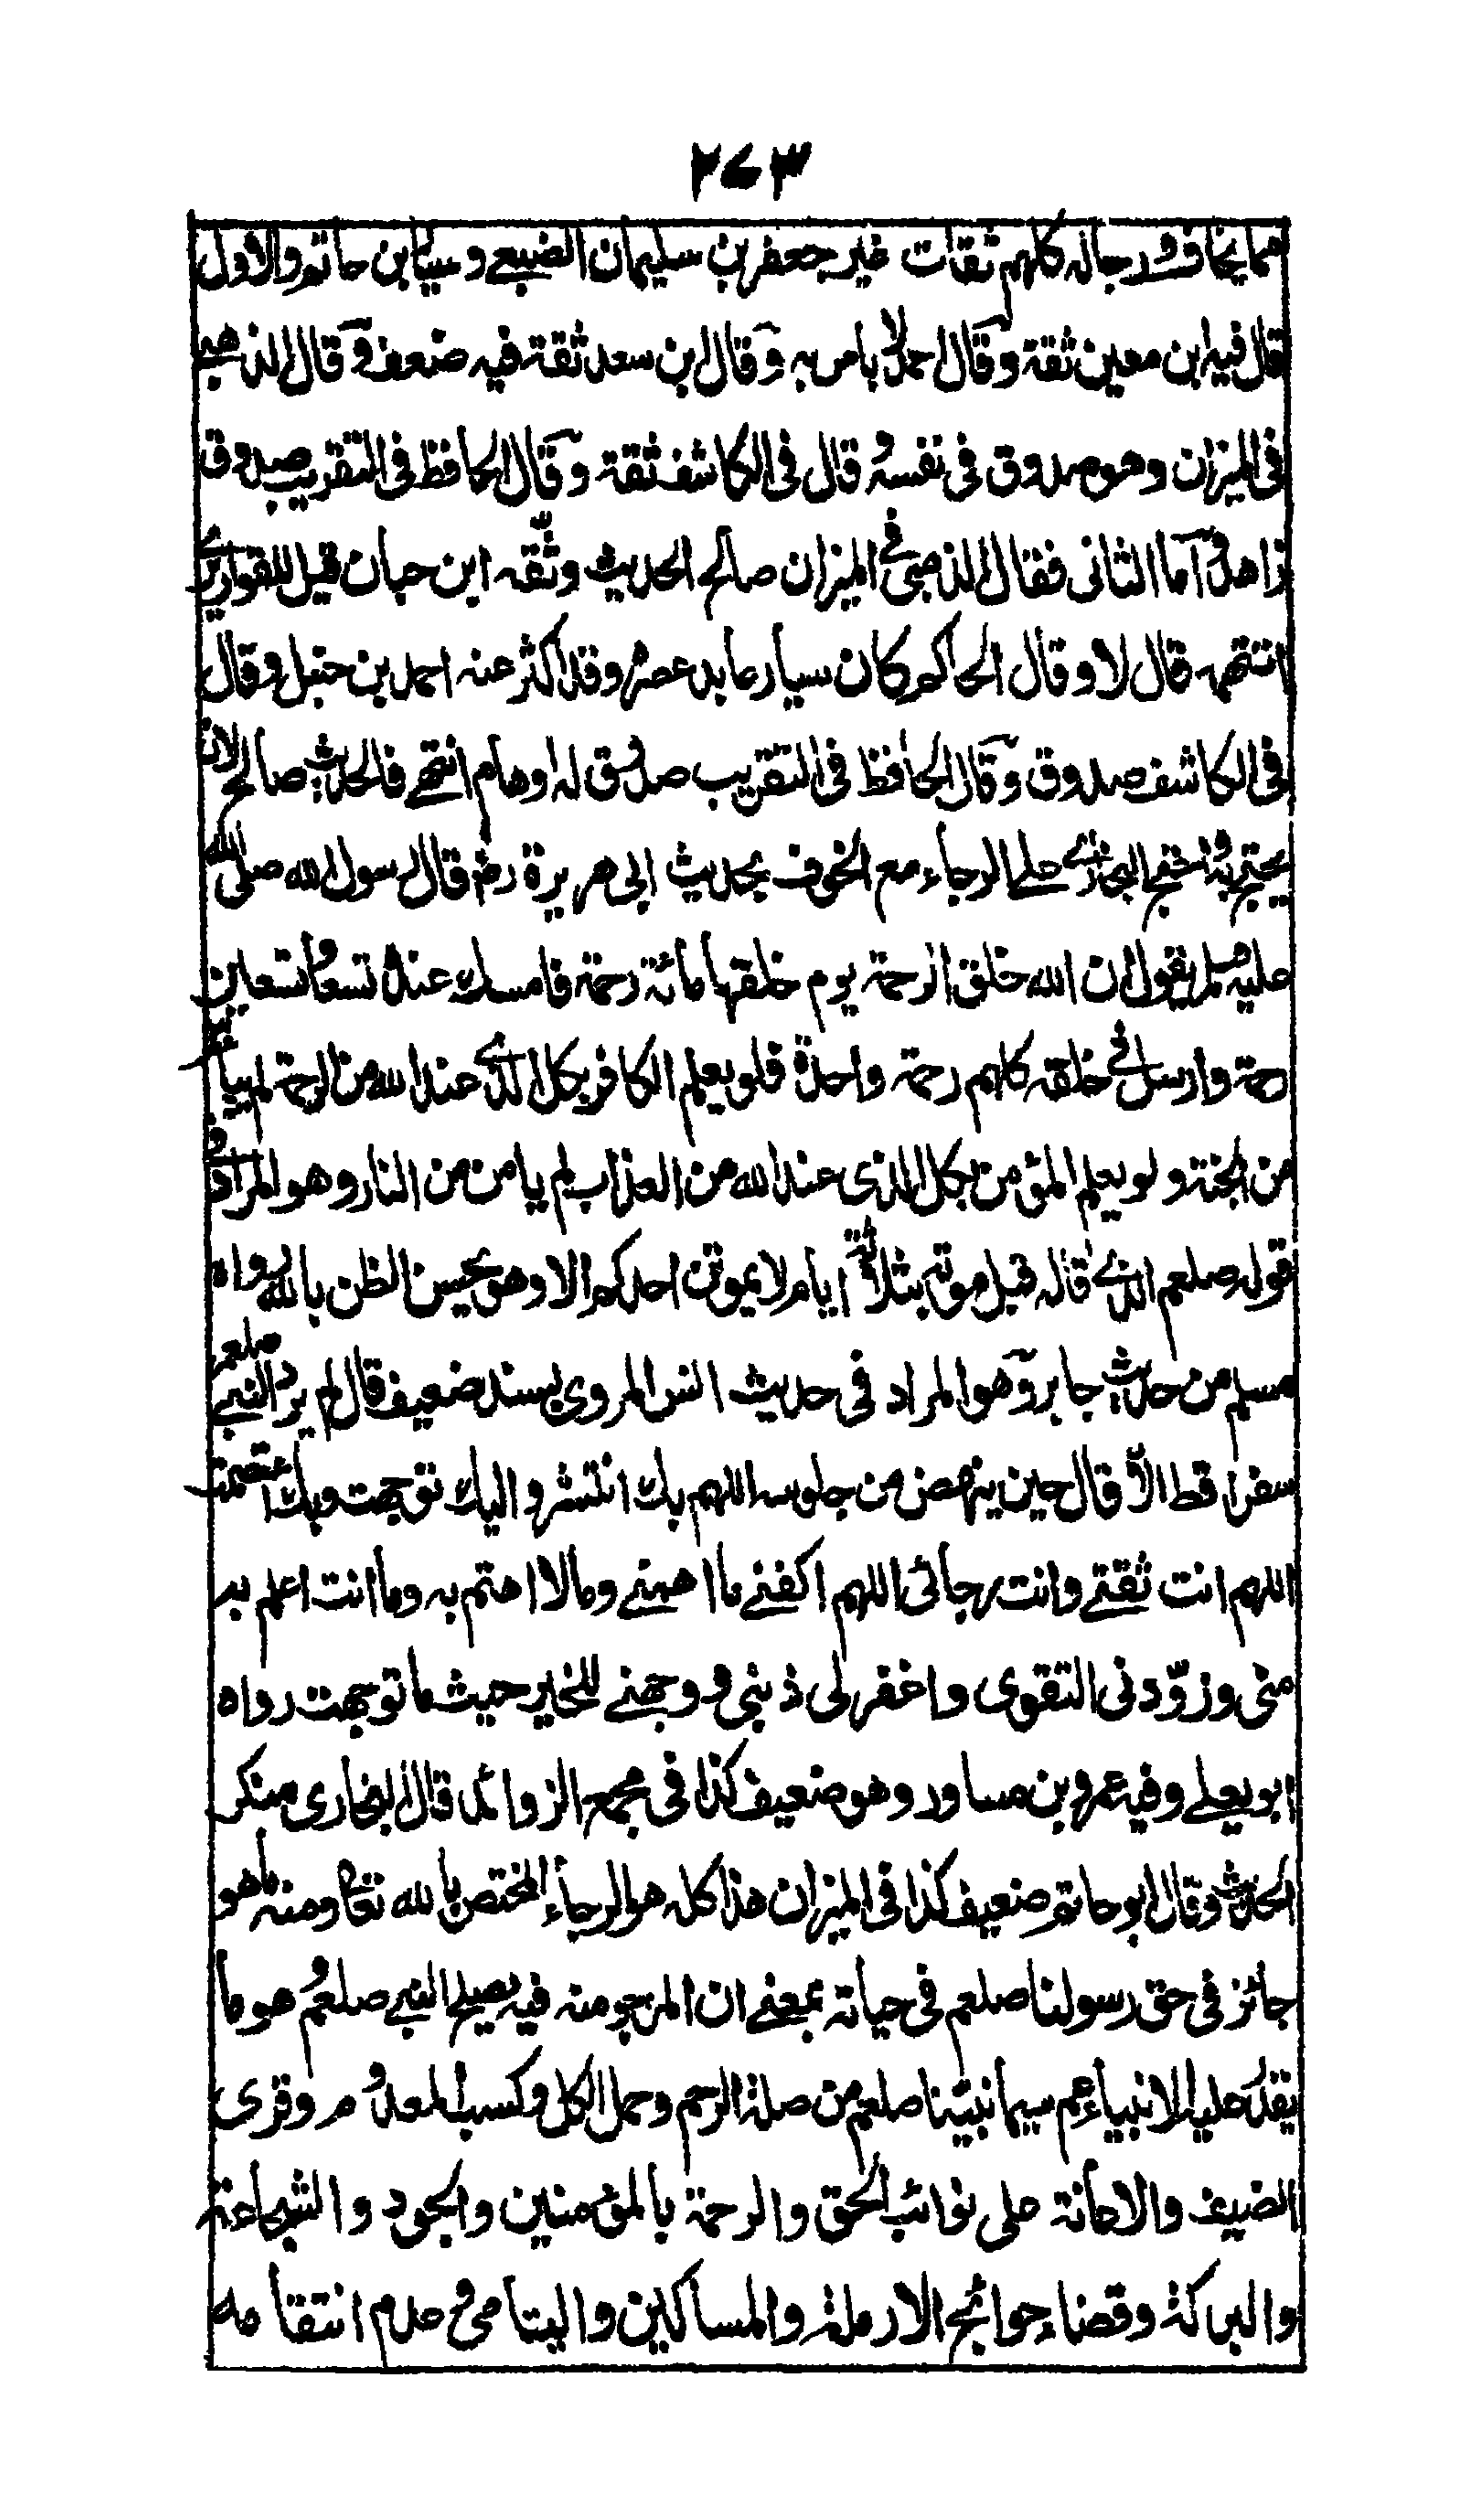 ٢٤٣
مما يخاف ورجاله كلهم ثقات غير جعفر بن سليمان الضبعي وسيار بن حاتم والاول
قال فيه ابن معين ثقة وقال احمد لا باس به وقال ابن سعد ثقة فيه ضعف وقال الذهبي
في الميزان وهو صدوق في نفسه وقال في الكاشف ثقة وقال الحافظ في التقريب صدوق
زاهد وآما الثاني فقال الذهبي في الميزان صالح الحديث وثّقه ابن حبان قيل للقواريري
اتتهمه قال لا وقال الحاكم كان سيار عابد عصره وقد اكثر عنه احمد بن حنبل وقال
في الكاشف صدوق وقال الحافظ في التقريب صدوق له اوهام انتهى فالحديث صالح لان
يحتج به واحتج البخاري على الرجاء مع الخوف بحديث ابي هريرة رض قال رسول الله صلى الله
عليه وسلم يقول ان الله خلق الرحمة يوم خلقها مائة رحمة فامسك عنده تسعا وتسعين
رحمة وارسل في خلقه كلهم رحمة واحدة فلو يعلم الكافر بكل الذي عند الله من الرحمة لم ييأس
من الجنة ولو يعلم المؤمن بكل الذي عند الله من العذاب لم يامن من النار وهو المراد في
قوله صلعم الذي قاله قبل موته بثلاثة ايام لا يموتن احدكم الا وهو يحسن الظن بالله رواه
مسلم من حديث جابر وهو المراد في حديث انس المروي بسند ضعيف قال لم يرد النبي صلعم
سفرا قط الّا قال حين ينهض من جلوسه اللهم بك انتشر واليك توجهت وبك اعتصمت
اللهم انت ثقتي وانت رجائي اللهم اكفني ما اهمني وما لا اهتم به وما انت اعلم به
مني وزوّدني التقوى واغفر لي ذنبي ووجهني للخير حيث ما توجهت رواه
ابو يعلى وفيه عمرو بن مساور وهو ضعيف كذا في مجمع الزوائد قال البخاري منكر
الحديث وقال ابو حاتم ضعيف كذا في الميزان هذا كله هو الرجاء المختص بالله تعالى ومنه ما هو
جائز في حق رسولنا صلعم في حياته بمعنى ان المرجو منه فيه يصلح النبي صلعم هو ما
يقدر عليه الانبياء عم سيما نبيّنا صلعم من صلة الرحم وحمل الكل وكسب المعدوم وقرى
الضيف والاعانة على نوائب الحق والرحمة بالمؤمنين والجود والشجاعة
والبركة وقضاء حوائج الارملة والمساكين واليتامى وعدم انتقامه